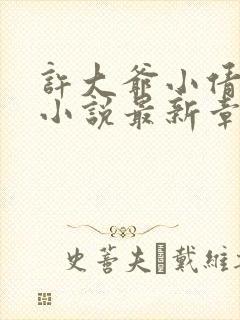 許大爺小倩
小說最新章
史蒂夫·戴維